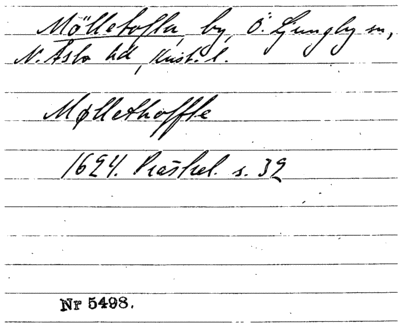 Mölletofta, by, Ö. Ljungby sn,
N. Åsbo hd, Krist. l.
Møllethoffte
1624. Præstrel. s. 32
Nr 5498.